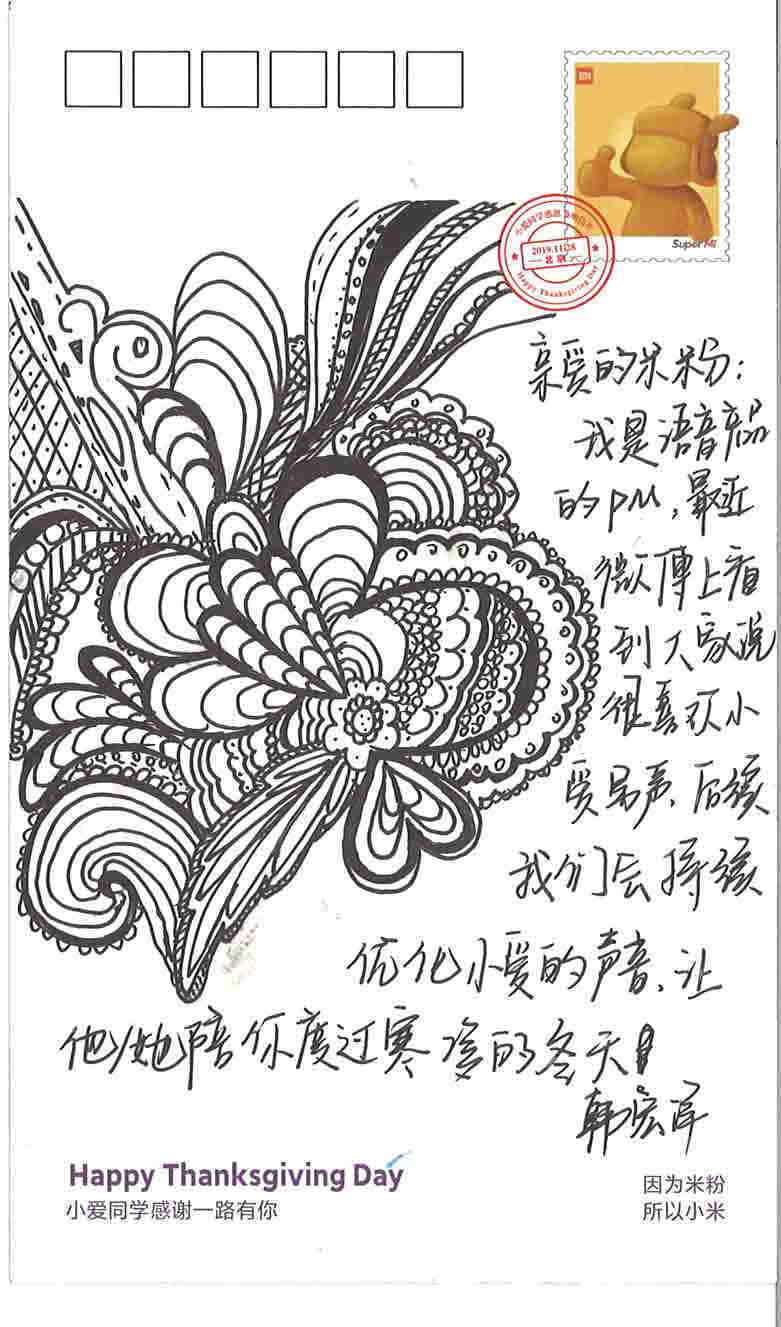 MI
Super Mi
小爱同学感恩
2019.11.28
北京
Happy Thanksgiving Day
亲爱的米粉：
我是语音产品
的PM，最近
微博上看
到大家说
很喜欢小
爱男声，后续
我们会持续
优化小爱的声音，让
他/她陪你度过寒冷的冬天！
韩宏泽
Happy Thanksgiving Day
小爱同学感谢一路有你
因为米粉
所以小米